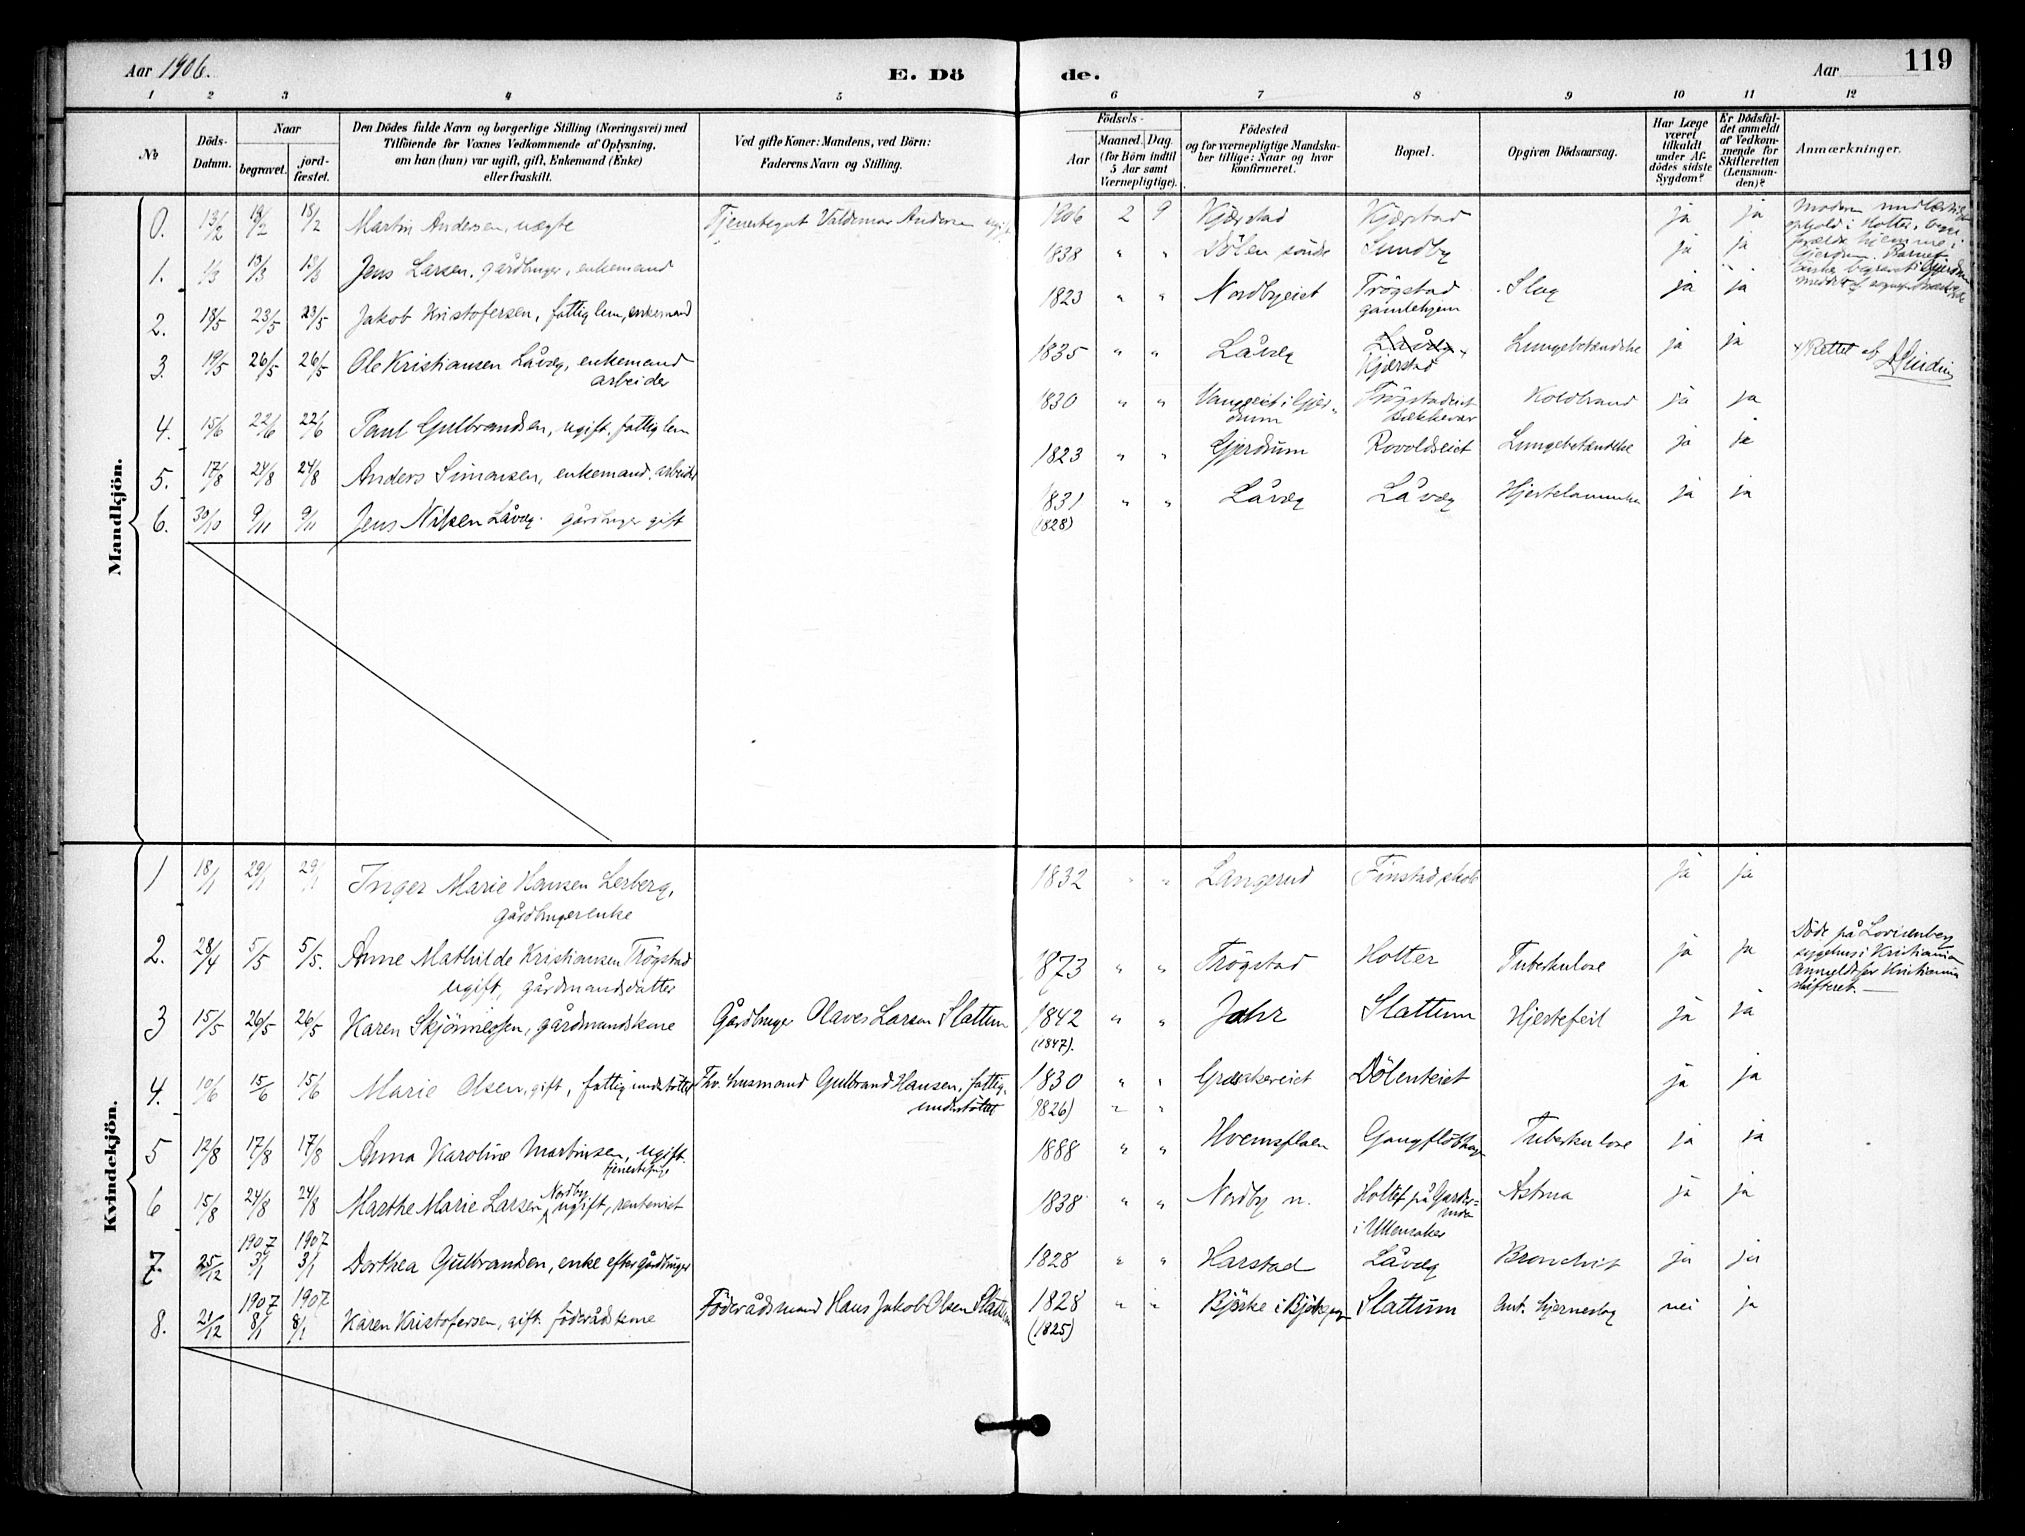 Aar 1906.
E. Dö
de.
Aar
119
1 2 3 4 5 6 7 8 9 10 11 12
No
Döds-
Datum.
Naar
begravet.
jord-
fæstet.
Den Dödes fulde Navn og borgerlige Stilling (Næringsvei) med
Tilföiende for Voxnes Vedkommende af Oplysning,
om han (hun) var ugift, gift, Enkemand (Enke)
eller fraskilt.
Ved gifte Koner: Mandens, ved Börn:
Faderens Navn og Stilling.
Födsels-
Aar
Maaned. Dag.
(for Börn indtil
5 Aar samt
Værnepligtige).
Födested
og for værnepligtige Mandska-
ber tillige: Naar og hvor
konfirmeret.
Bopæl.
Opgiven Dödsaarsag.
Har Læge
været
tilkaldt
under Af-
dödes sidste
Sygdom?
Er Dödsfal-
det anmeldt
af Vedkom-
mende for
Skifteretten
(Lensman-
den)?
Anmærkninger.
Mandkjön.
0. 13/2 18/2 18/2 Martin Andersen, uægte Tjenestegut Valdemar Andersen ugift 1906 2 9 Kjærstad Kjærstad ja ja
1. 1/3 13/3 13/3 Jens Larsen, gårdbruger, enkemand 1838 " " Dölen söndre Sundby ja ja
2. 18/5 23/5 23/5 Jakob Kristofersen, fattiglem, enkemand 1823 " " Nordbyeiet Trögstad Slag ja ja
gamlehjem
3. 19/5 26/5 26/5 Ole Kristiansen Låveg, enkemand 1835 " " Låveg Låveg Lungebetændelse ja ja Rettet af
arbeider
Kjærstad
4. 15/6 22/6 22/6 Paul Gulbrandsen, ugift, fattiglem 1830 " " i Gjer- Koldbrand ja ja
drum
5. 17/8 24/8 24/8 Anders Simonsen, enkemand, arbeider 1823 " " Gjerdrum Rovoldseiet Lungebetændelse ja ja
6. 30/10 9/11 9/11 Jens Nilsen Låveg. gårdbruger gift 1831 " " Låveg Låveg Hjertelammelse ja ja
(1828)
Kvindekjön.
1 18/1 29/1 29/1 Inger Marie Hansen Lerberg, 1832 " " Langerud Finstad skole ja ja
gårdbrugerenke
2. 28/4 5/5 5/5. Anne Mathilde Kristiansen Trögstad 1873 " " Trögstad Holter Tuberkulose ja ja
ugift, gårdmandsdatter
Döde på Lovisenberg
sygehus i Kristiania
Anmeldt for Kristiania
skifteret.
3 15/5 26/5 26/5 Karen Skjönnessen, gårdmandskone Gårdbruger Olaves Larsen Slattum 1842 " " Jahr Slattum Hjertefeil ja ja
(1847).
4. 10/6 15/6 15/6 Marie Olsen, gift, fattigunderstöttet Fhv. husmand Gulbrand Hansen, fattig- 1830 " " Dölenteiet ja ja
understöttet
1826) " "
5 12/8 17/8 17/8 Anna Karoline Martinsen, ugift 1888 " " Tuberkulose ja ja
tjenestepige
6 15/8 24/8 24/8 Marthe Marie Larsen Nordby ugift, rentenist 1838 " " Nordby n. Holter på Garder- Astma ja ja
moen
i Ullensaker
1907 1907
7. 25/12 3/1 3/1 Dorthea Gulbrandsen, enke efter gårdbruger 1828 " " Harstad Låveg Bronchit ja ja
1907 1907
8. 21/12 8/1 8/1 Karen Kristofersen, gift föderådskone Föderådsmand Hans Jakob Olsen Slattum 1828 " " Björke i Slattum Ant. hjerneslag nei ja
(1825)